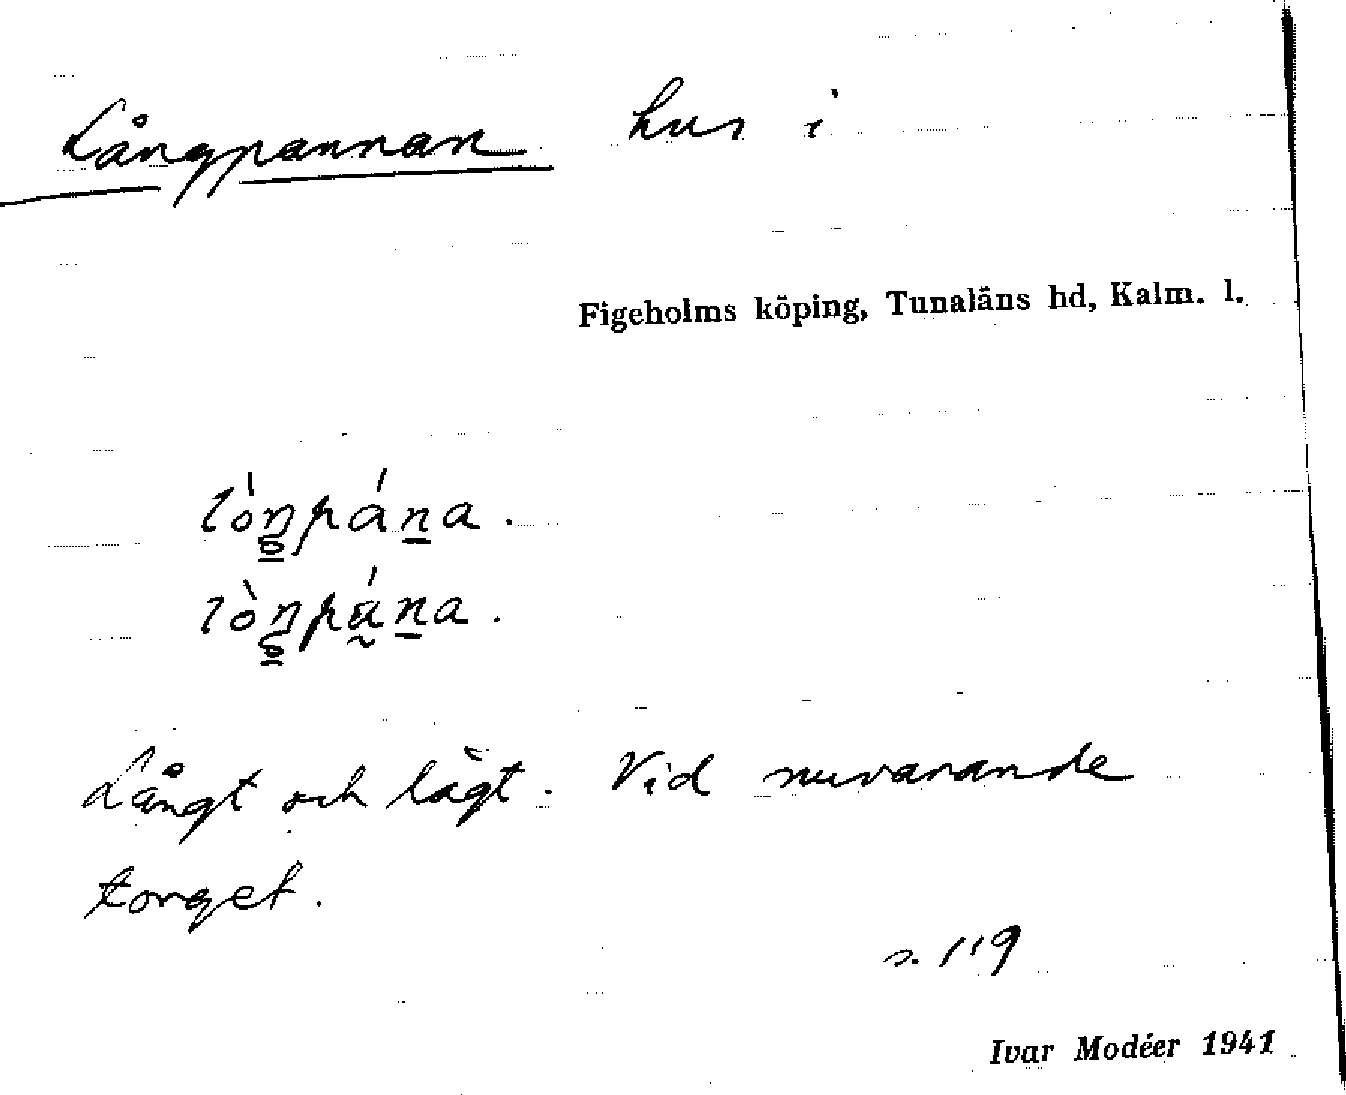 Långpannan hus i
Figeholms köping, Tunaläns hd, Kalm. l.
lóŋpána.
lòŋpána.
Långt och lågt. Vid nuvarande
torget.
s. 119
Ivar Modéer 1941